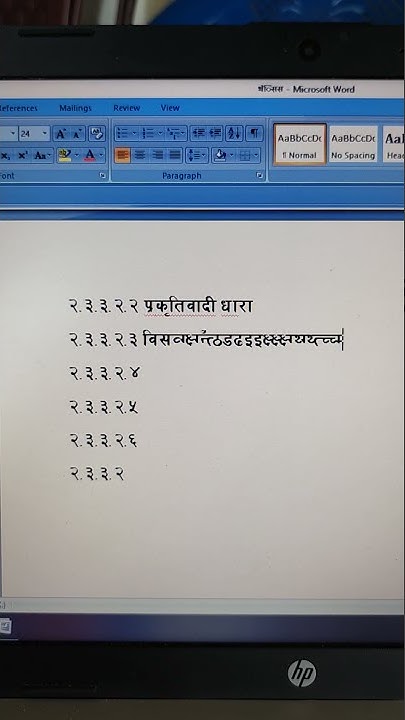 Microsoft Word
References Mailings Review View
24
AaBbCcDc AaBbCcDc
¶ Normal No Spacing
Font Paragraph
२.३.३.२.२ प्रकृतिवादी धारा
२.३.३.२.३
२.३.३.२.४
२.३.३.२.५
२.३.३.२.६
२.३.३.२
hp